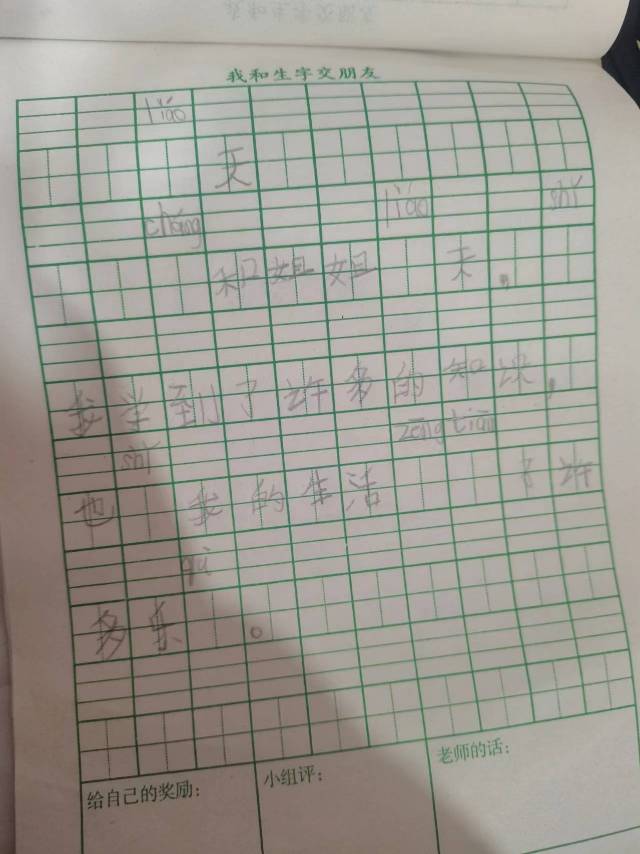 我和生字交朋友
liáo
天
cháng liáo shǐ
和姐姐 天，
我学到了许多的知识，
shǐ zēng tiān
也 我的生活 了许
qù
多乐 。
给自己的奖励：
小组评：
老师的话：